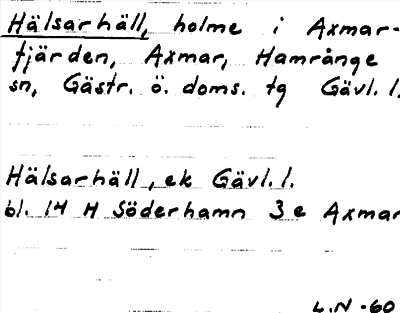 Hälsarhäll, holme i Axmar-
fjärden, Axmar, Hamrånge
sn, Gästr. ö. doms. tg Gävl. l.
Hälsarhäll, ek Gävl. l.
bl. 14 H Söderhamn 3 e Axmar
L.N -60